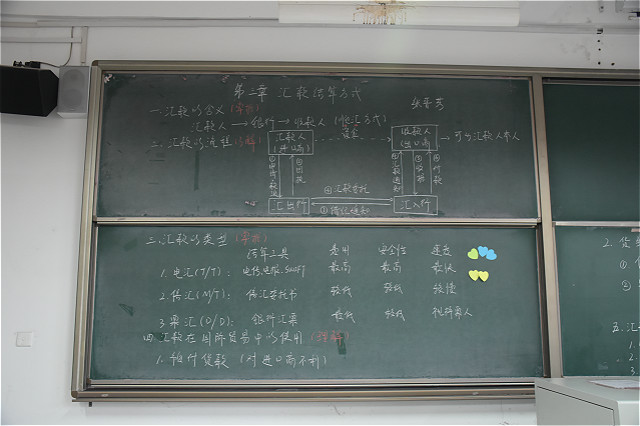 第三章 汇款结算方式
一.汇款的含义（掌握）
汇款人→银行→收款人（顺汇方式）
二.汇款的流程（理解）
汇款人（进口商）
收款人（出口商）
→可为汇款人本人
④汇款委托
汇出行
汇入行
三.汇款的类型（掌握）
结算工具 费用 安全性 速度
1.电汇(T/T): 电传电报、SWIFT 最高 最高 最快
2.信汇(M/T): 信汇委托书 较低 较低 较慢
3.票汇(D/D): 银行汇票 最低 较低 视持票人
四.汇款在国际贸易中的使用（理解）
1.预付货款（对进口商不利）
2.货
①
②
五.汇
1.
2.
3.